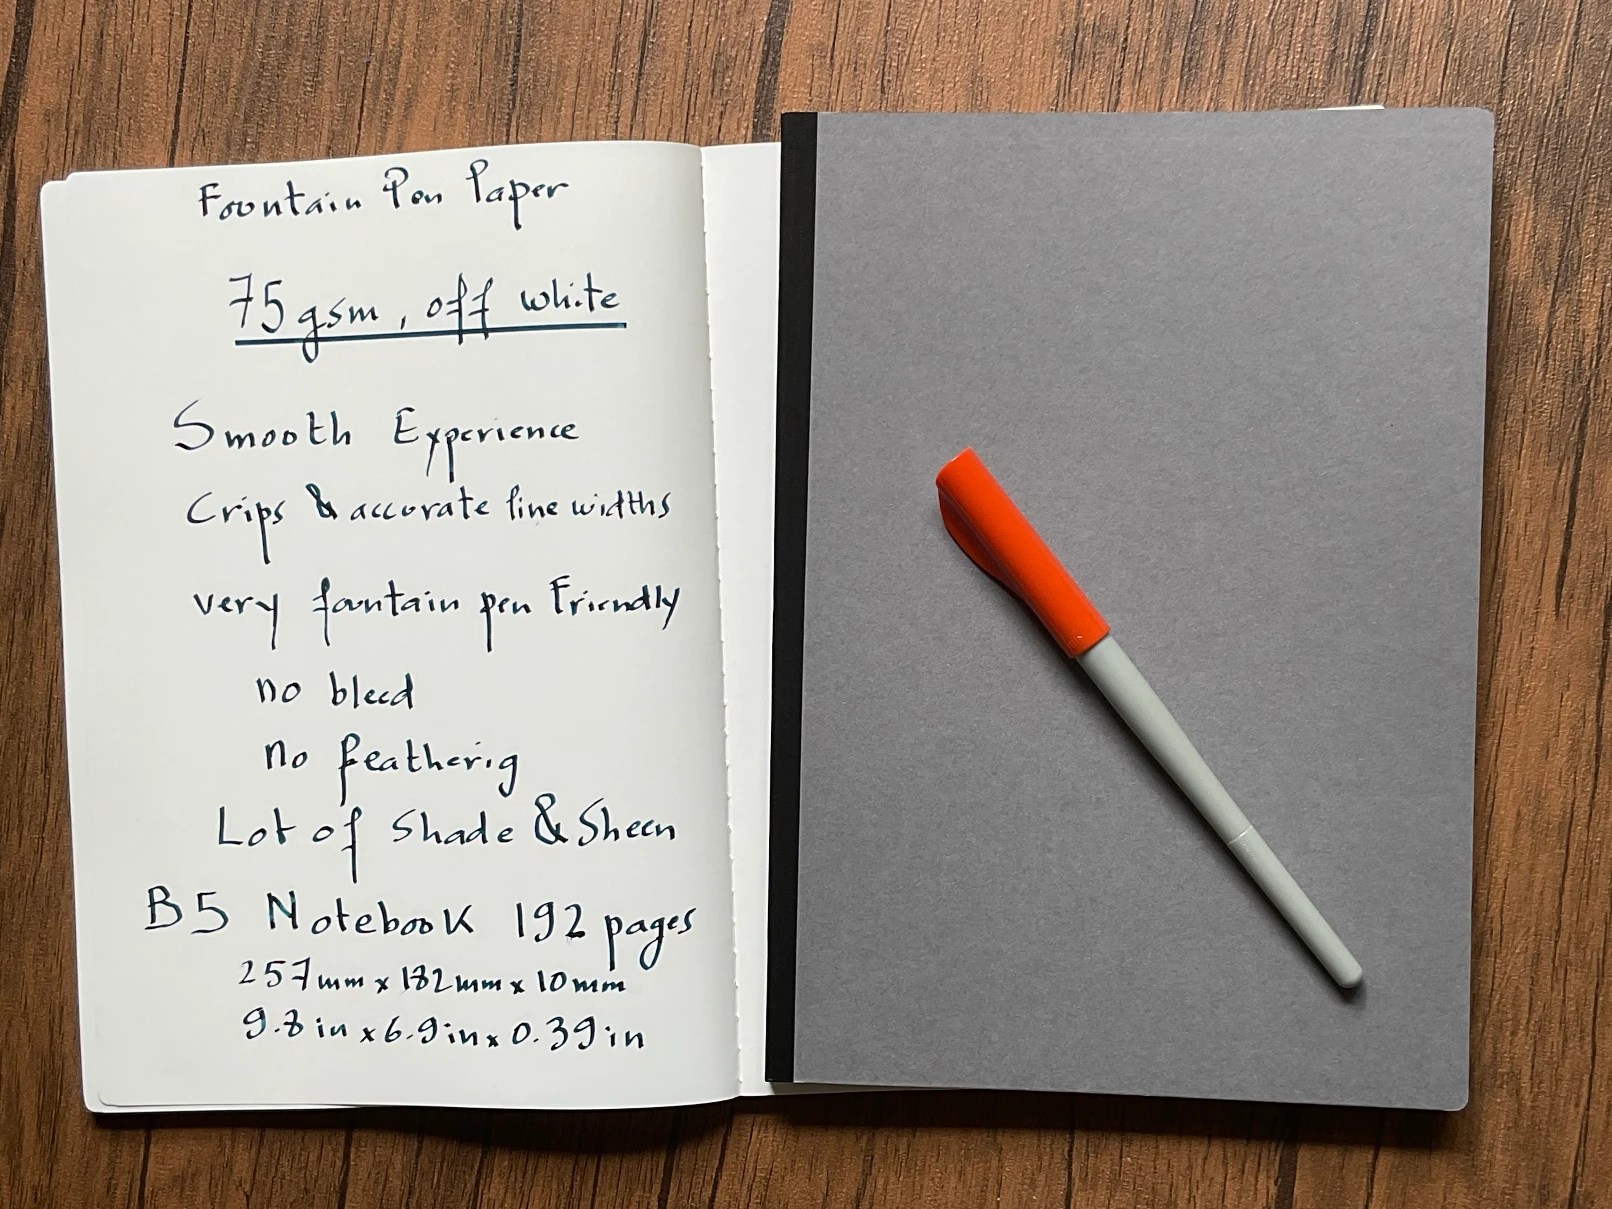 Fountain Pen Paper
75gsm, off white
Smooth Experience
Crips & accurate line widths
very fountain pen Friendly
no bleed
no featherig
Lot of Shade & Sheen
B5 Notebook 192 pages
257mm x 182mm x 10mm
9.8in x 6.9in x 0.39in